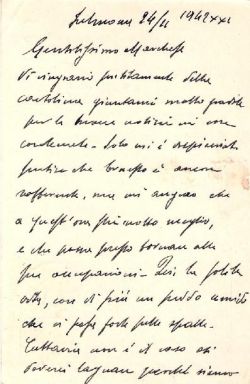 Sulmona 24/11 1942 XXI
Gentilissimo Marchese
Vi ringrazio infinitamente della
cartolina giuntami molto gradita
per le buone notizie in essa
contenute - Solo mi è dispiaciuto
sentire che è ancora
sofferente, ma mi auguro che
a quest'ora stia molto meglio,
e che possa presto tornare alle
sue occupazioni - Qui la solita
vita, con di più un freddo umido
che si fa forte sulle spalle -
Tuttavia non è il caso di